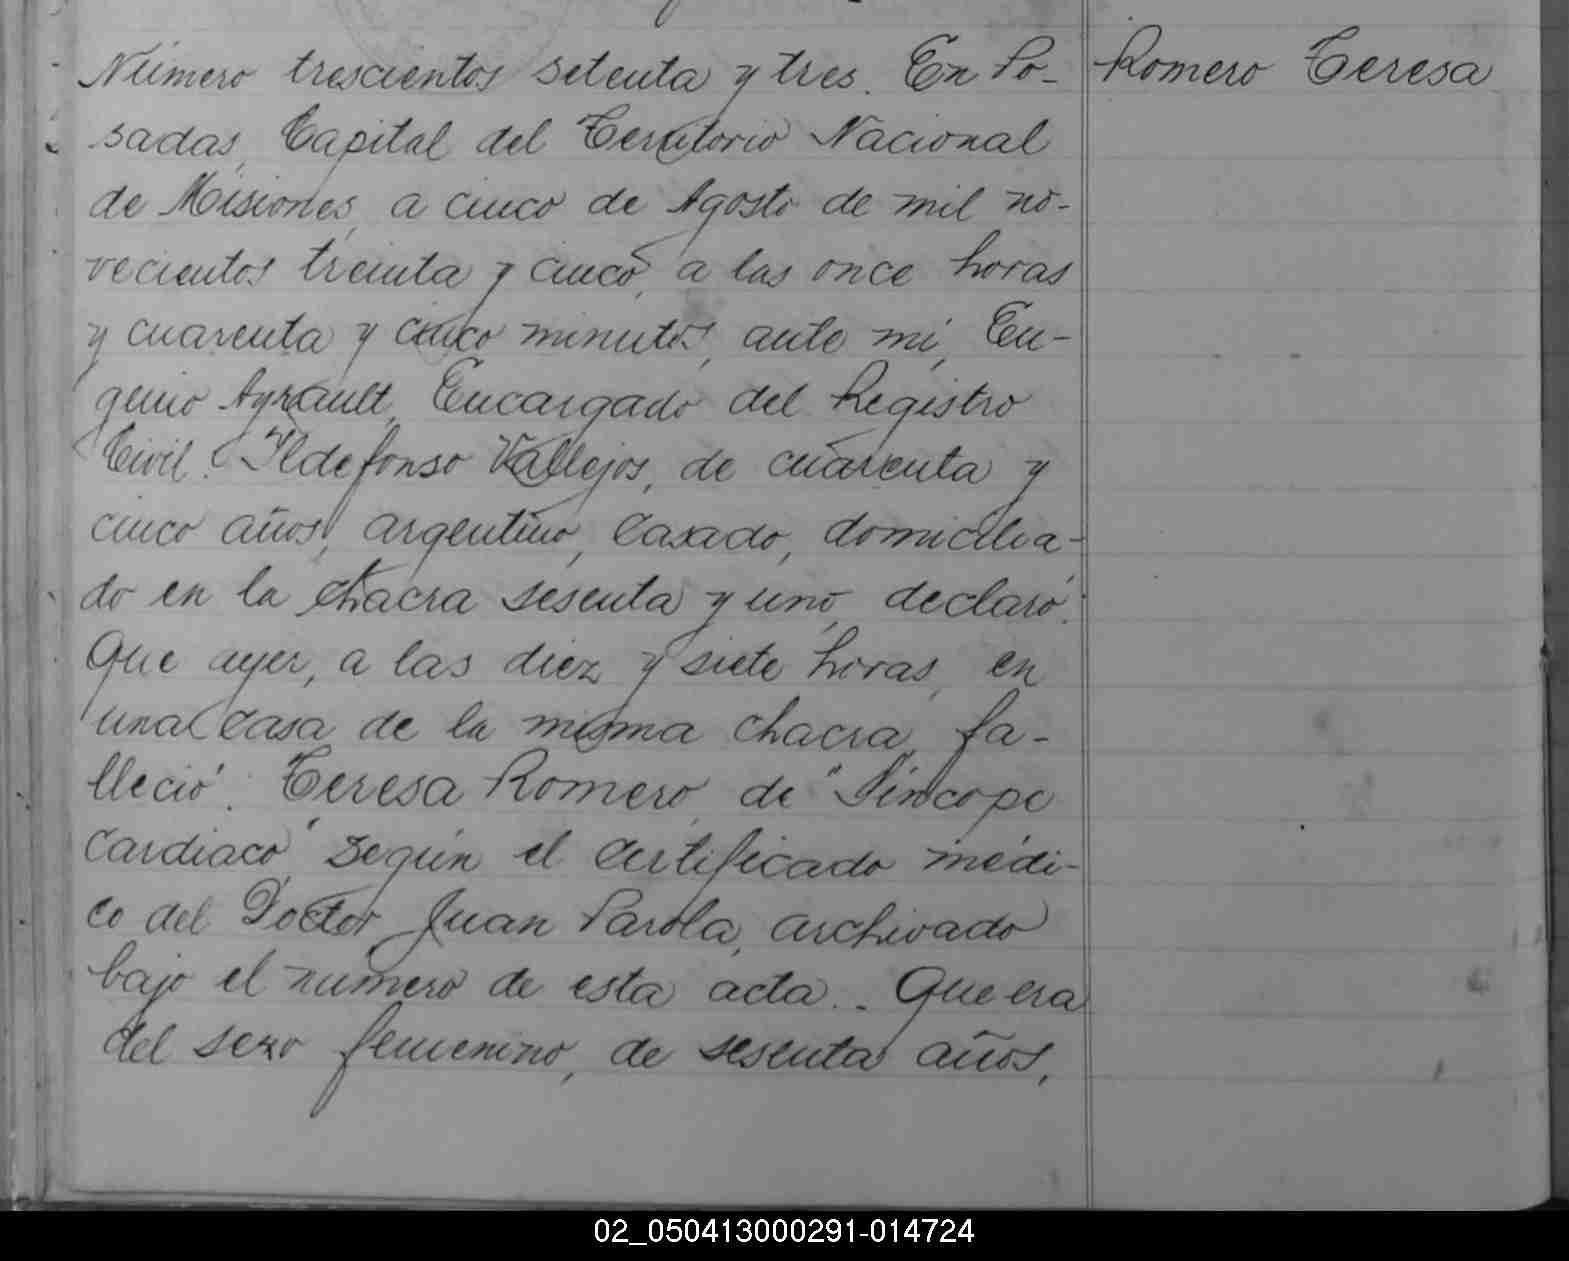 Número trescientos setenta y tres. En Po-
sadas, Capital del Territorio Nacional
de Misiones, a cinco de Agosto de mil no-
vecientos treinta y cinco, a las once horas
y cuarenta y cinco minutos, ante mi, Eu-
genio Ayrault, Encargado del Registro
Civil: Ildefonso Vallejos, de cuarenta y
cinco años, argentino, casado, domicilia-
do en la chacra sesenta y uno, declaró:
Que ayer, a las diez y siete horas, en
una casa de la misma chacra, fa-
lleció: Teresa Romero, de "Síncope
cardiaco" según el certificado médi-
co del Doctor Juan Parola, archivado
bajo el numero de esta acta. - Que era
del sexo femenino, de sesenta años,
Romero Teresa
02_050413000291-014724